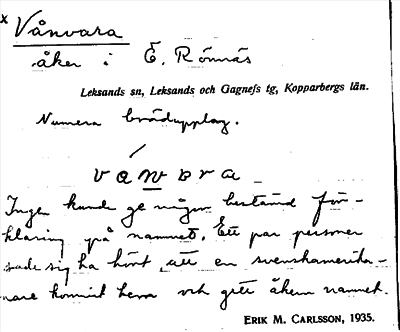 x
Vånvara
åker i E. Rönnäs
Leksands sn, Leksands och Gagnefs tg, Kopparbergs län.
Numera brädupplag.
vanvara
Ingen kunde ge någon bestämd för-
klaring på namnet. Ett par personer
sade sig ha hört, att en svenskamerika-
nare kommit hem och gett åkern namnet.
ERIK M. CARLSSON, 1935.